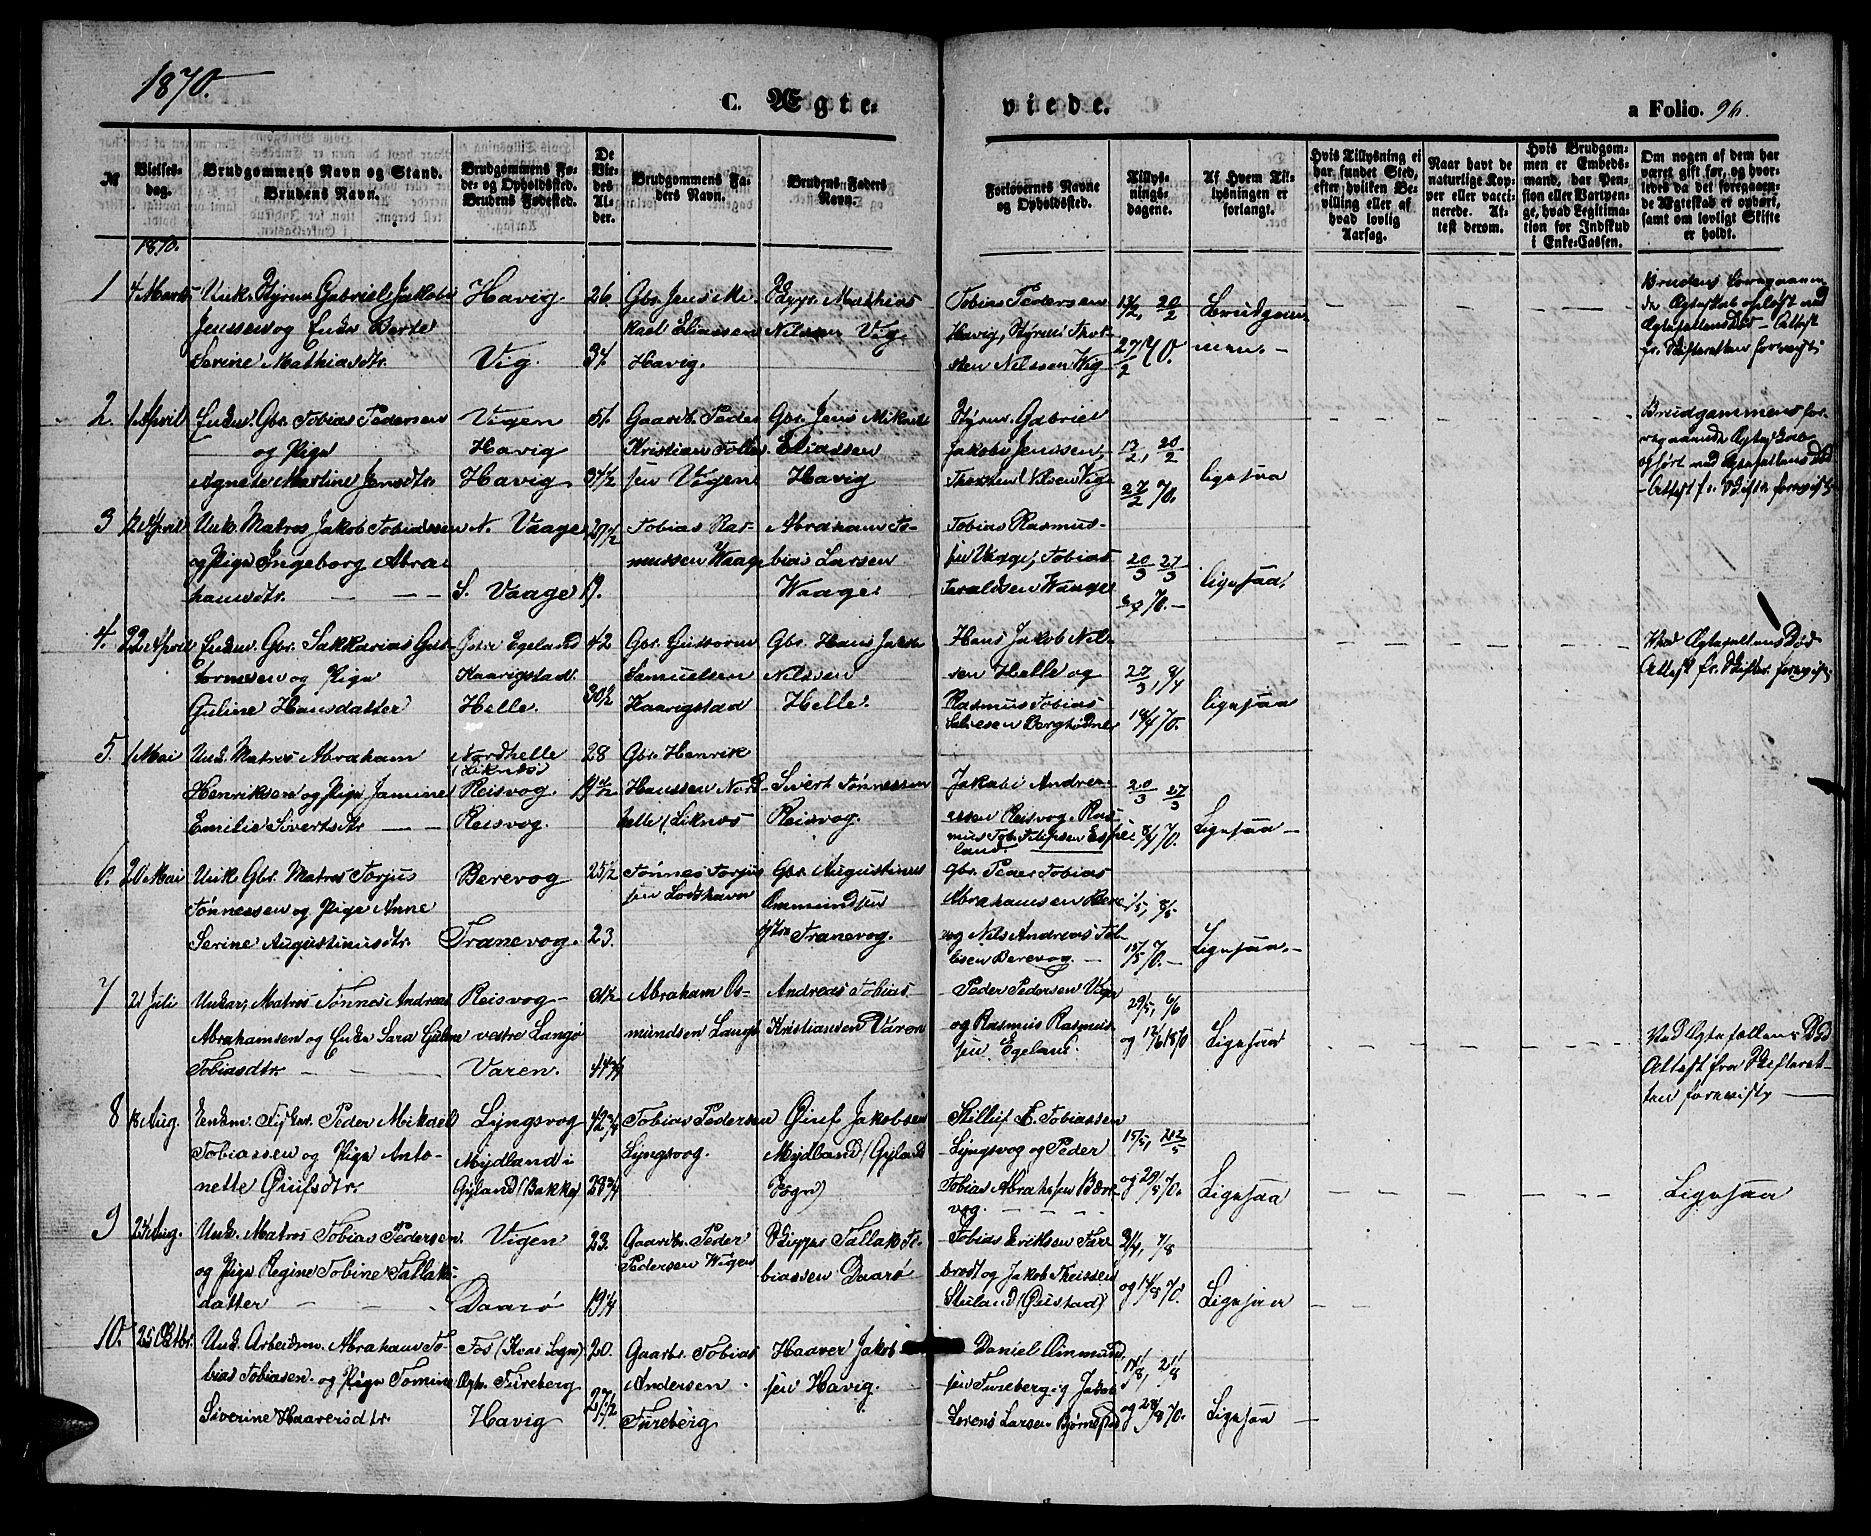 1870.
C. Ægte-
viede.
a Folio. 96.
№
Vielses-
dag.
Brudgommens Navn og Stand.
Brudens Navn.
Brudgommens Fø-
de- og Opholdssted.
Brudens Fødested.
De
Vie-
des
Al-
der.
Brudgommens Fa-
ders Navn.
Brudens Faders
Navn.
Forlovernes Navne
og Opholdssted.
Tillys-
nings-
dagene.
Af Hvem Til-
lysningen er
forlangt.
Hvis Tillysning ei
har fundet Sted,
efter hvilken Be-
villing eller af
hvad lovlig
Aarsag.
Naar havt de
naturlige Kop-
per eller vacci-
nerede. At-
test derom.
Hvis Brudgom-
men er Embeds-
mand, har Pen-
sion eller Vartpen-
ge, hvad Legitima-
tion for Indskud
i Enke-Cassen.
Om nogen af dem har
været gift før, og hvor-
ledes da det foregaaen-
de Ægteskab er ophørt,
samt om lovligt Skifte
er holdt.
1870.
1
4 Marts
Unk. Styrm. Gabriel Jakobi
Jenssen og Enke Berte
Serine Mathiasdtr.
Havig.
Vig.
26.
37.
Gbr. Jens Mi-
kael Eliassen
Havig.
Mathias
Nilssen Vig.
Tobias Pedersen
Havig, Styrm. Thor-
sten Nilssen Vig
13/2, 20/2
27/2 70.
Brudgom-
men.
Brudens foregaaen-
de Ægteskab opløst ved
Ægtefællens Død - Attest
fr. Skifteretten forevist.
2.
1 April
Enkm. Gbr. Tobias Pedersen
og Pige
Agnete Martine Jensdtr.
Vigen
Havig
Havig
51.
37 1/2
Gaardb. Peder
Kristian Tolle-
sen Vigen
Gbr. Jens Mikael
Eliassen
Havig
Styrm. Gabriel
Jakobi Jenssen,
Thorsten Nilsen Vig
13/2, 20/2
27/2 70.
ligesaa
Brudgommens for-
egaaende Ægteskab
ophørt ved Ægtefællens Død
- Attest fr. Skifte forevist.
3
12 April
Unk. Matros Jakob Tobiassen
og Pige Ingeborg Abra-
hamsdtr.
N. Vaage
S. Vaage
27 1/2
19.
Tobias Ras-
mussen Waage
Abraham To-
bias Larsen
Waage.
Tobias Rasmus-
sen Waage, Tobias
Taraldsen Waage
20/3 27/3
70.
ligesaa.
4.
22 April
Enkm. Gbr. Sakkarias Gut-
tormsen og Pige
Guline Hansdatter
Egeland
Kaarigstad
Helle.
42
30 1/2
Gbr. Guttorm
Samuelsen
Kaarigstad
Gbr. Hans Jakob
Nilssen
Helle.
Hans Jakob Nil-
sen Helle og
Rasmus Tobias
Salvesen
27/3, 9/4
18/4 70.
ligesaa
Ved Ægtefællens Død
Attest fr. Skifter. forevist
5.
1 Mai
Unk. Matros Abraham
Henriksen og Pige Jamine
Emilie Sivertsdtr
Nordhelle
(Liknes)
Reisvog.
Reisvog.
28
19 1/2
Gbr. Henrik
Hanssen Nord-
helle (Liknes
Sivert Tønnessen
Reisvog.
Jakobi Andrea-
essen Reisvog. Ras-
mus Tob. Filipsen Espe-
land.
20/3 27/3
3/4 70.
Ligesaa
6.
20 Mai
Unk. Gbr. Matros Torjus
Tønnessen og Pige Anne
Serine Augustinusdtr.
Berevog
Tranevog.
25 1/2
23.
Tønnes Torjus-
sen Loshavn
Gbr. Augustinus
Ommundsen
Tranevog.
Gbr. Peder Tobias
Abrahamsen Bere-
vog Nils Andreas Tob-
isen Berevog.
1/5, 8/5
15/5 70.
Ligesaa.
7
21 Juli
Unkar, Matros Tønnes Andreas
Abrahamsen og Enke Sara Guline
Tobiasdtr.
Reisvog
vestre Langø
Varen.
31 1/2
44 3/4
Abraham Os-
mundsen Langø
Andreas Tobias
Kristiansen Varen
Peder Pedersen Vige
og Rasmus Rasmus-
sen Egeland.
29/5, 6/6
og 12/6 1870
Ligesaa
Ved Ægtefællens Død
Attest fra Skifteret-
ten forevist
8
18 Aug.
Enkm. Peder Mikael
Tobiassen og Pige Anto-
nette Øiufsdtr.
Lyngsvog
Mydland i
Gyland (Bakke)
42 3/4
23 3/4
Tobias Pedersen
Lyngsvog.
Øiuf Jakobsen
Mydland (Gyland
Sogn)
Stilluf E. Tobiassen
Lyngsvog og Peder
Tobias Abrahamsen Bære-
vog.
15/5, 22/5
og 29/5 70.
Ligesaa
Ligesaa
9
25 Aug.
Unk. Matros Tobias Pedersen
og Pige Regine Tobine Tallaks-
datter
Vigen
Daarø
23.
19 1/4
Gaardbr. Peder
Pedersen Wigen
Skipper Tallak To-
biassen Daarø
Tobias Eriksen Far-
brodt og Jakob Theissen
Stuland (Øiestad)
7/8
og 14/8 70.
Ligesaa
10.
25 Oktbr.
Unk. Arbeidsm. Abraham To-
bias Tobiasen. og Pige Tomine
Siverine Haaversdtr.
Fos (Kvas Sogn)
Opb. Fureberg
Havig
20.
27 1/2
Gaardbr. Tobias
Andersen
Fureberg
Haaver Jakob-
sen Havig.
Daniel Ommund-
sen Fureberg og Jakob
Lorens Larsen Bjørnestad
14/8, 21/8
og 28/8 70.
Ligesaa